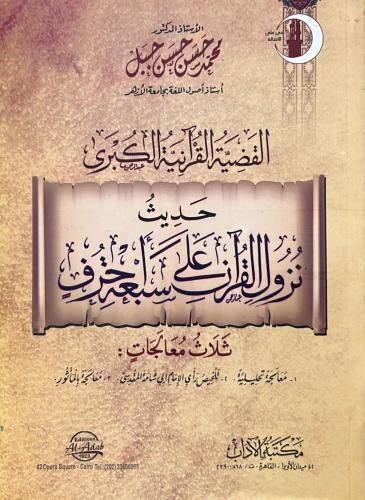 الأستاذ الدكتور
محمد حسن حسن جبل
أستاذ أصول اللغة بجامعة الأزهر
القضية القرآنية الكبرى
حَدِيثُ
نُزُولِ القُرآنِ عَلَى سَبْعَةِ أَحْرُفٍ
ثَلَاثُ مُعَالَجَاتٍ :
١- مُعَالَجَة تحليلية ٢- تلخيص رأي الإمام أبي شامة المقدسي ٣- معالجة بالمأثور.
مكتبة الآداب
٤٢ ميدان الأوبرا - القاهرة - ت/ ٢٣٩٠٠٨٦٨
Editions
Al-Adab
1923
42 Opera Square - Cairo Tel: (202) 23900868